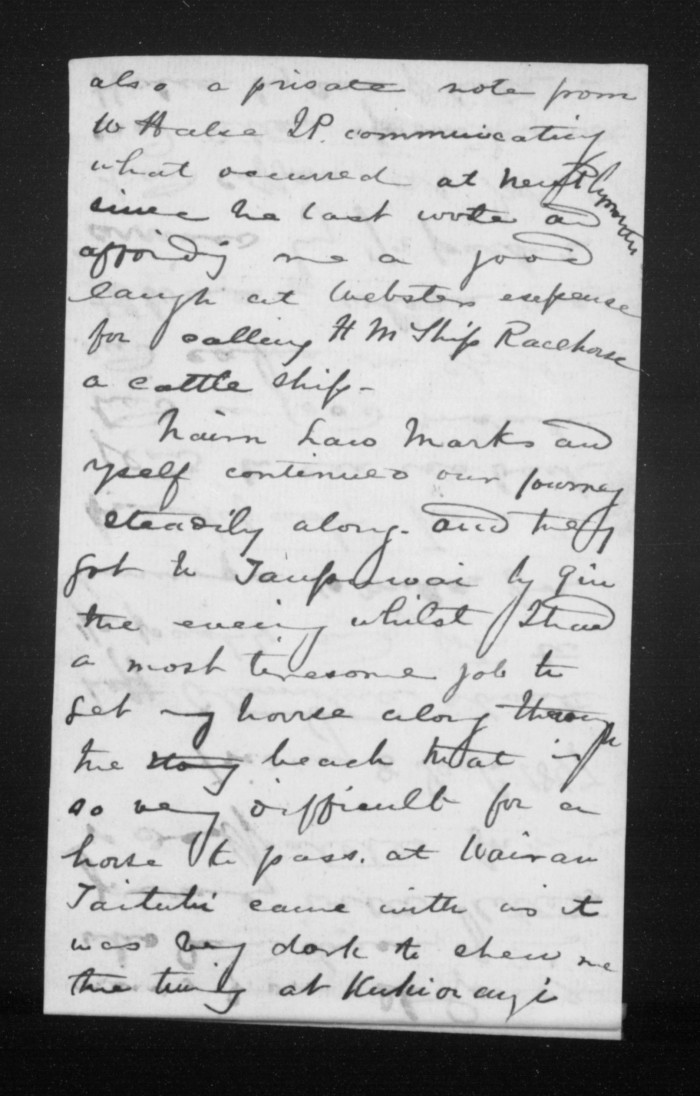 also a private note from
W Halse JP. communicating
what occurred at New Plymouth
since he last wrote and
affording me a good
laugh at Websters expense
for calling H M Ship Racehorse
a cattle ship -
Nairn Law Marks and
myself continued our journey
steadily along. and they
got to by 9 in
the evening whilst I had
a most tiresome job to
get my horse along through
the stony beach that is
so very difficult for a
horse to pass. at Wairau
Taituhi came with us it
was very dark to shew me
the turning at